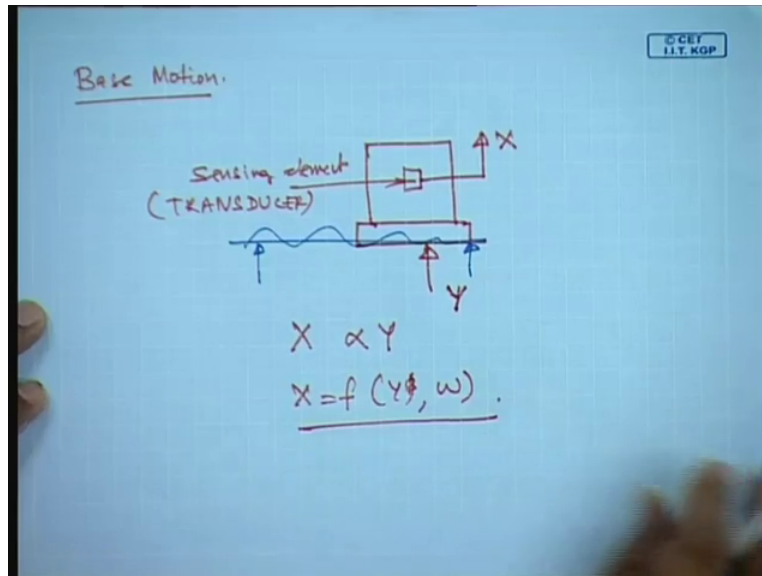 © CET
I.I.T. KGP
Base Motion.
X
Sensing element
(TRANSDUCER)
Y
X ∝ Y
X = f (Y, W) .